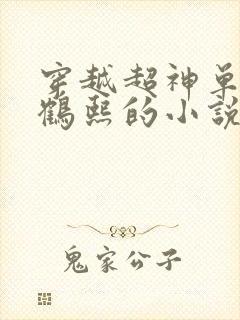 穿越超神单
鶴熙的小說
鬼家公子